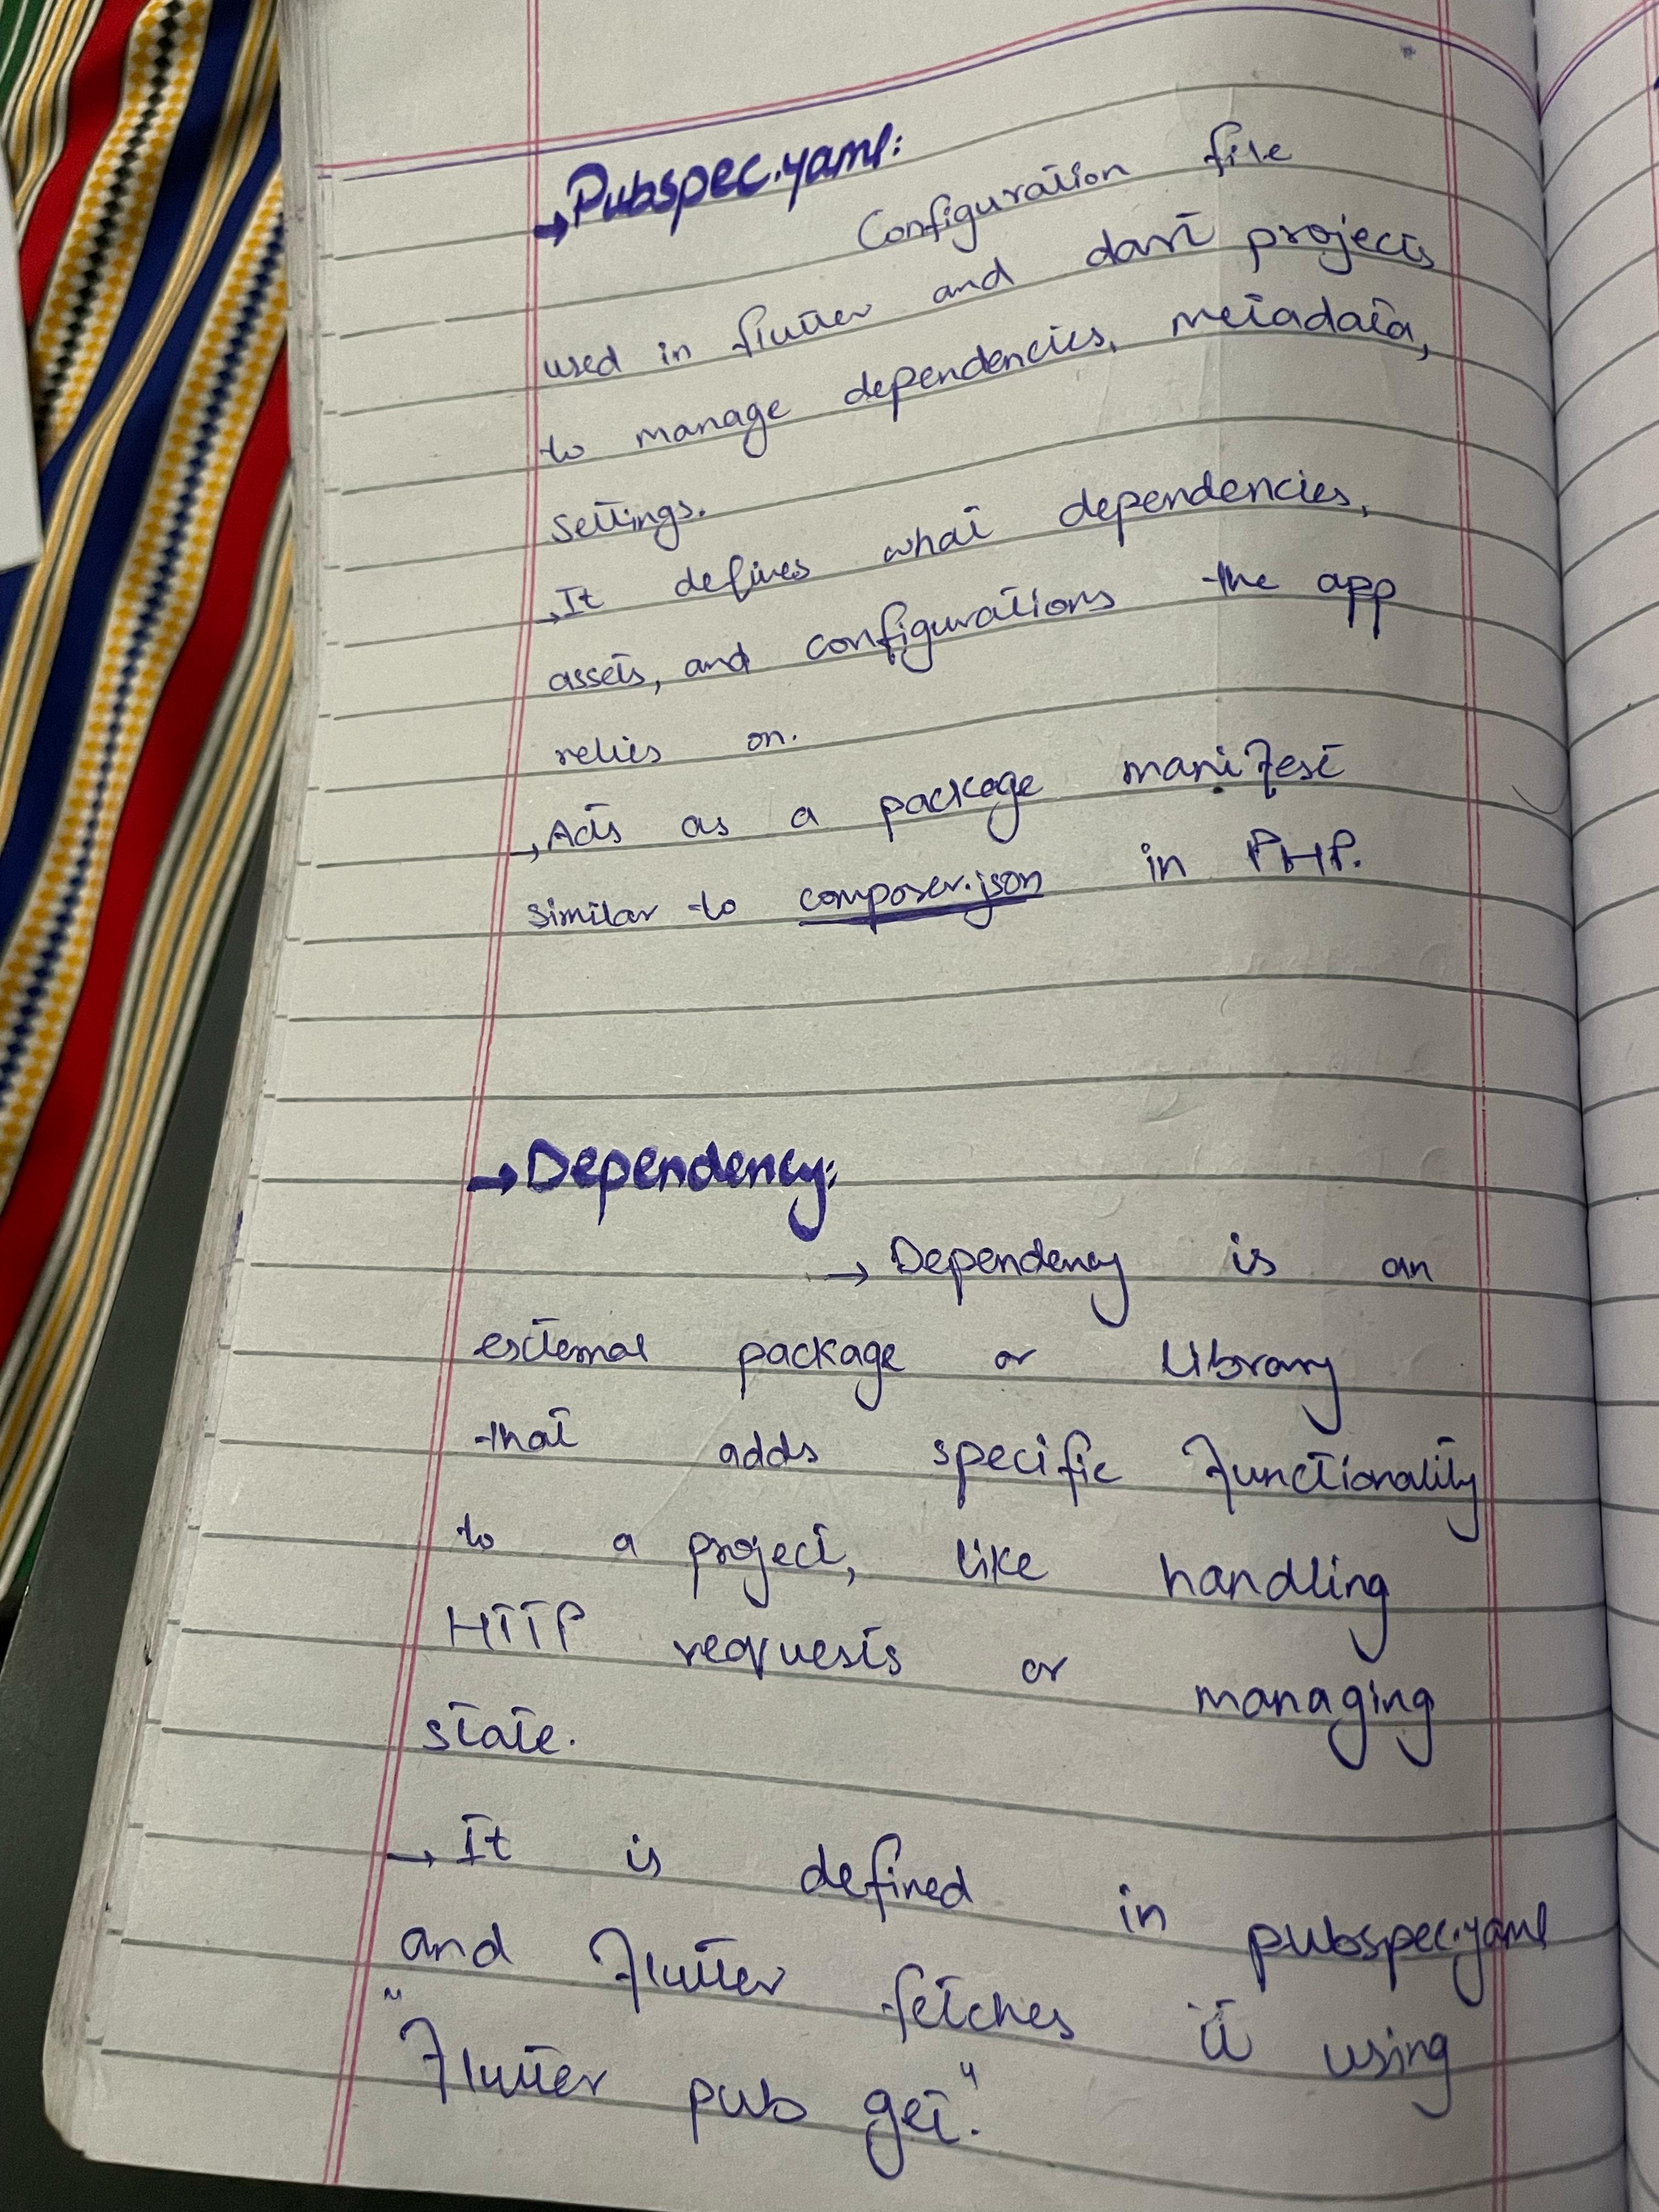 →Pubspec.yaml:
Configuration file
used in flutter and dart projects
to manage dependencies, metadata,
settings.
→It defines what dependencies,
assets, and configurations the app
relies on.
→Acts as a package manifest
similar to composer.json in PHP.
→Dependency:
→ Dependency is an
external package or Library
that adds specific functionality
to a project, like handling
HTTP requests or managing
state.
→ It is defined in pubspec.yaml
and flutter fetches it using
"flutter pub get."